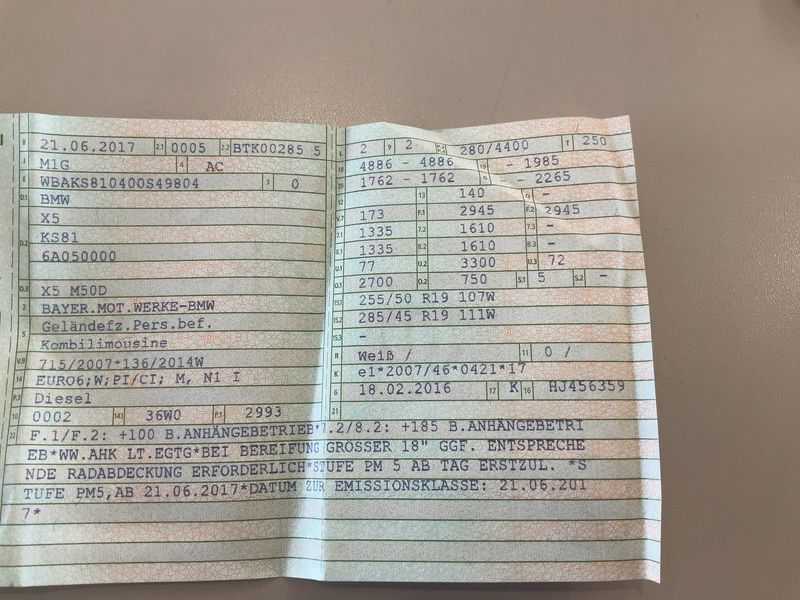 B 21.06.2017 2.1 0005 2.2 BTK00285 5
J M1G 4 AC
E WBAKS810400S49804 3 0
D.1 BMW
X5
D.2 KS81
6A050000
D.3 X5 M50D
2 BAYER.MOT.WERKE-BMW
Geländefz.Pers.bef.
5 Kombilimousine
V.9 715/2007*136/2014W
14 EURO6;W;PI/CI; M, N1 I
P.3 Diesel
10 0002 14.1 36W0 P.1 2993
L 2 9 2 P.2 280/4400 T 250
18 4886 - 4886 19 - 1985
20 1762 - 1762 G - 2265
12 13 140 Q -
V.7 173 F.1 2945 F.2 2945
7.1 1335 7.2 1610 7.3 -
8.1 1335 8.2 1610 8.3 -
U.1 77 U.2 3300 U.3 72
O.1 2700 O.2 750 S.1 5 S.2 -
15.1 255/50 R19 107W
15.2 285/45 R19 111W
15.3 -
R Weiß / 11 0 /
K e1*2007/46*0421*17
6 18.02.2016 17 K 16 HJ456359
21
22 F.1/F.2: +100 B.ANHÄNGEBETRIEB*7.2/8.2: +185 B.ANHÄNGEBETRI
EB*WW.AHK LT.EGTG*BEI BEREIFUNG GRÖSSER 18" GGF. ENTSPRECHE
NDE RADABDECKUNG ERFORDERLICH*STUFE PM 5 AB TAG ERSTZUL. *S
TUFE PM5,AB 21.06.2017*DATUM ZUR EMISSIONSKLASSE: 21.06.201
7*